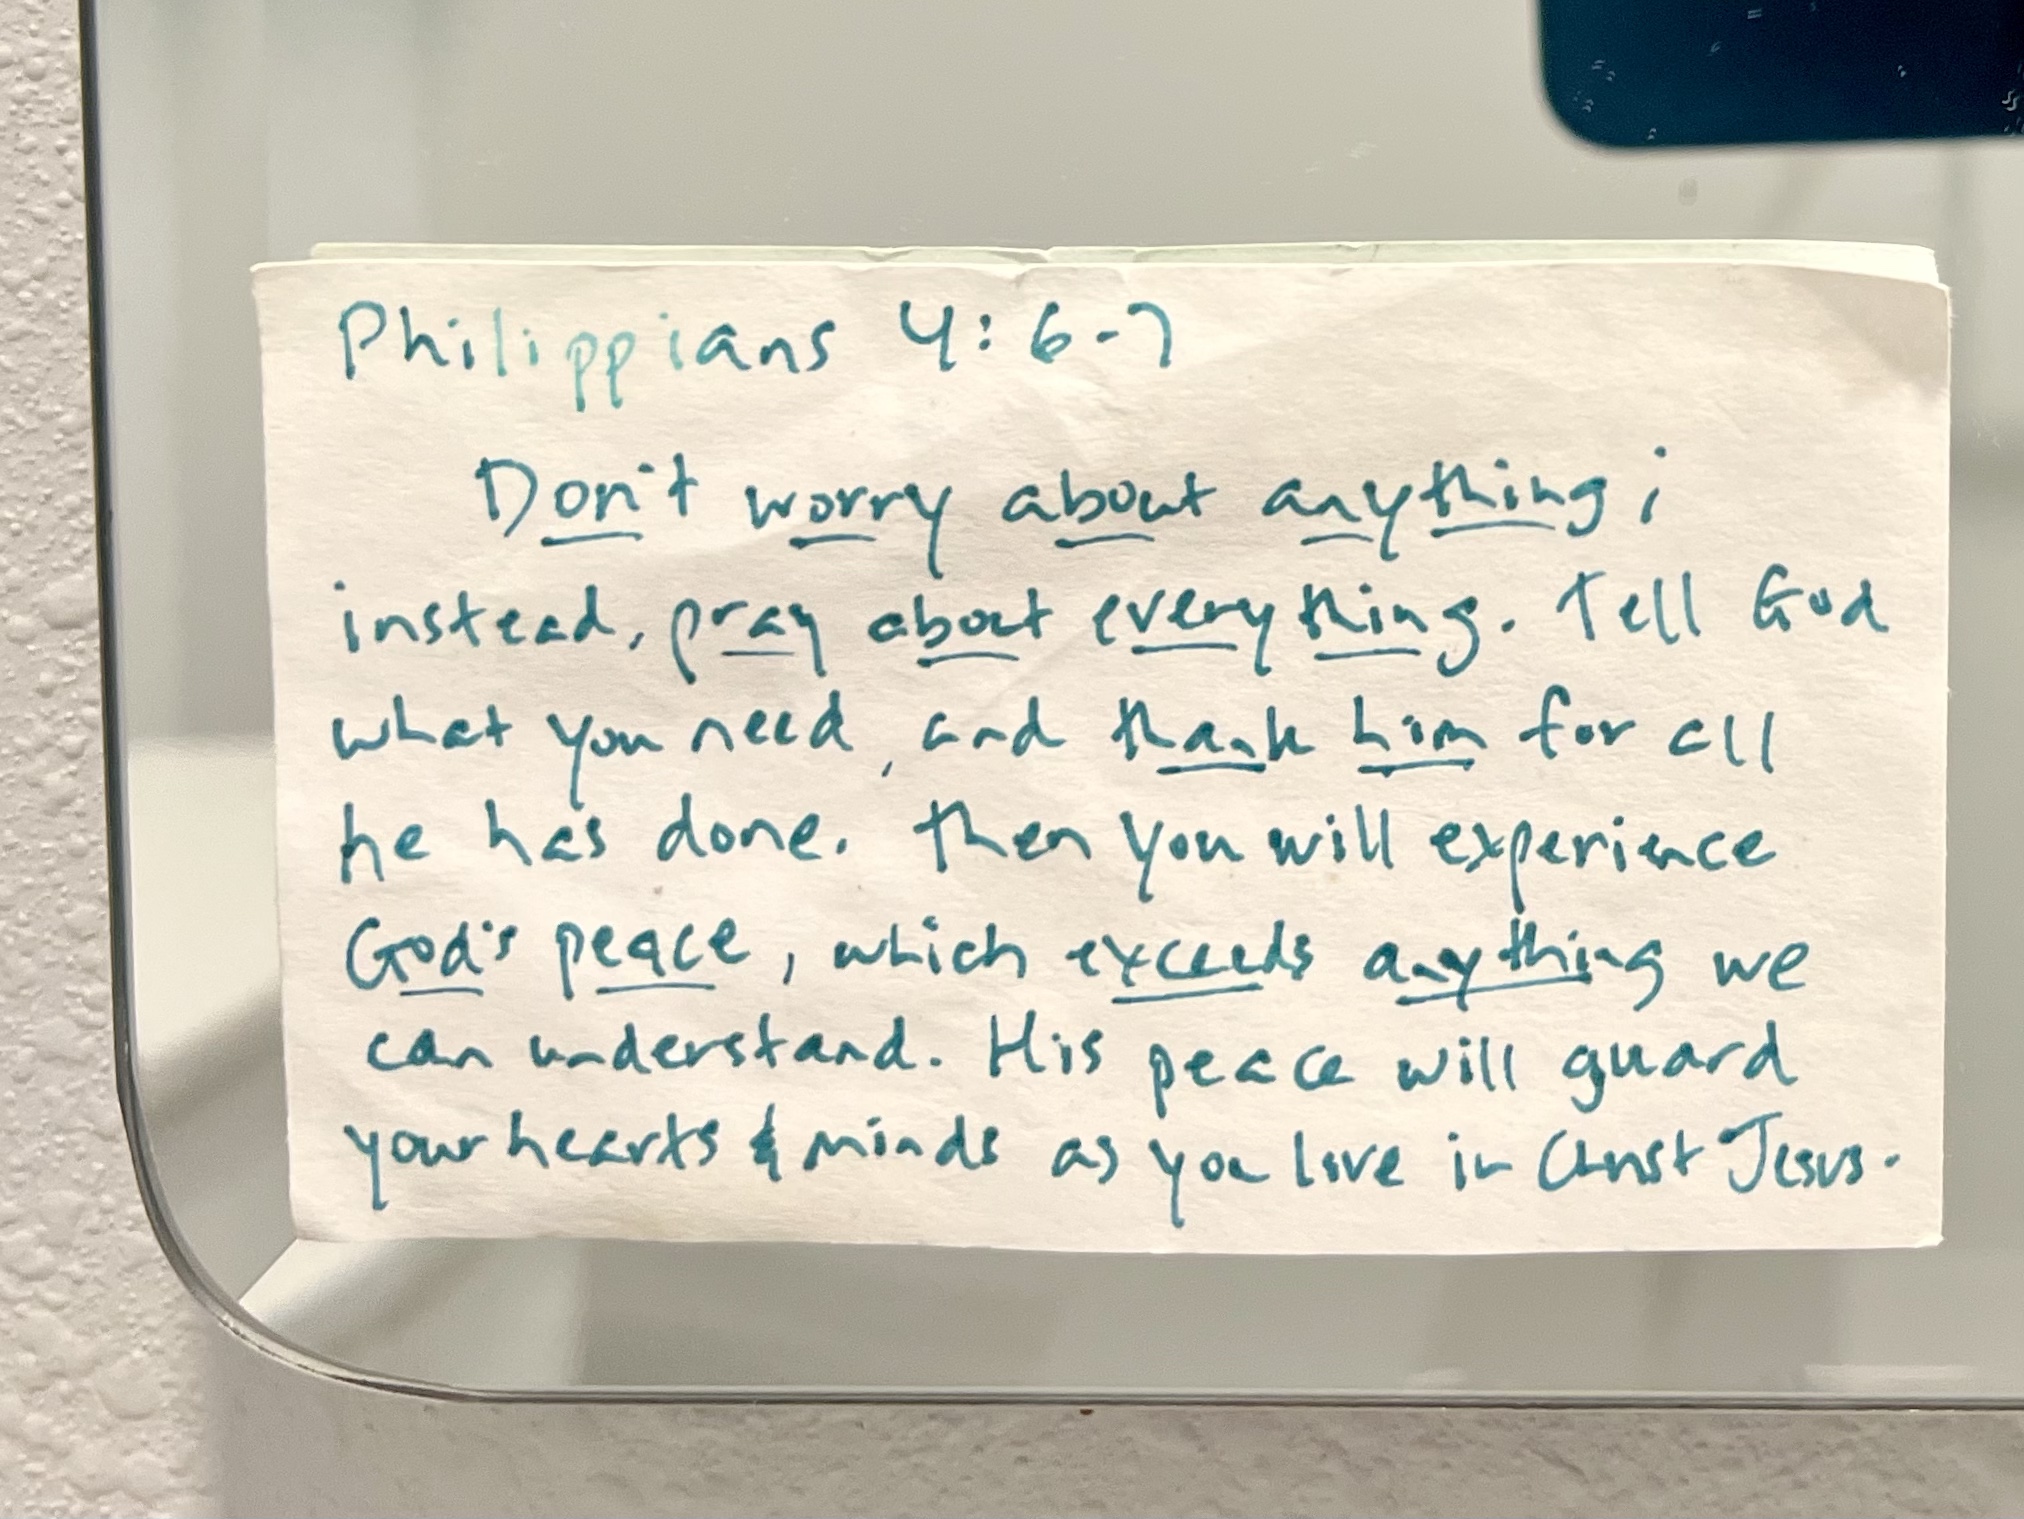 Philippians 4:6-7
Don't worry about anything;
instead, pray about everything. Tell God
what you need, and thank him for all
he has done. Then you will experience
God's peace, which exceeds anything we
can understand. His peace will guard
your hearts & minds as you live in Christ Jesus.